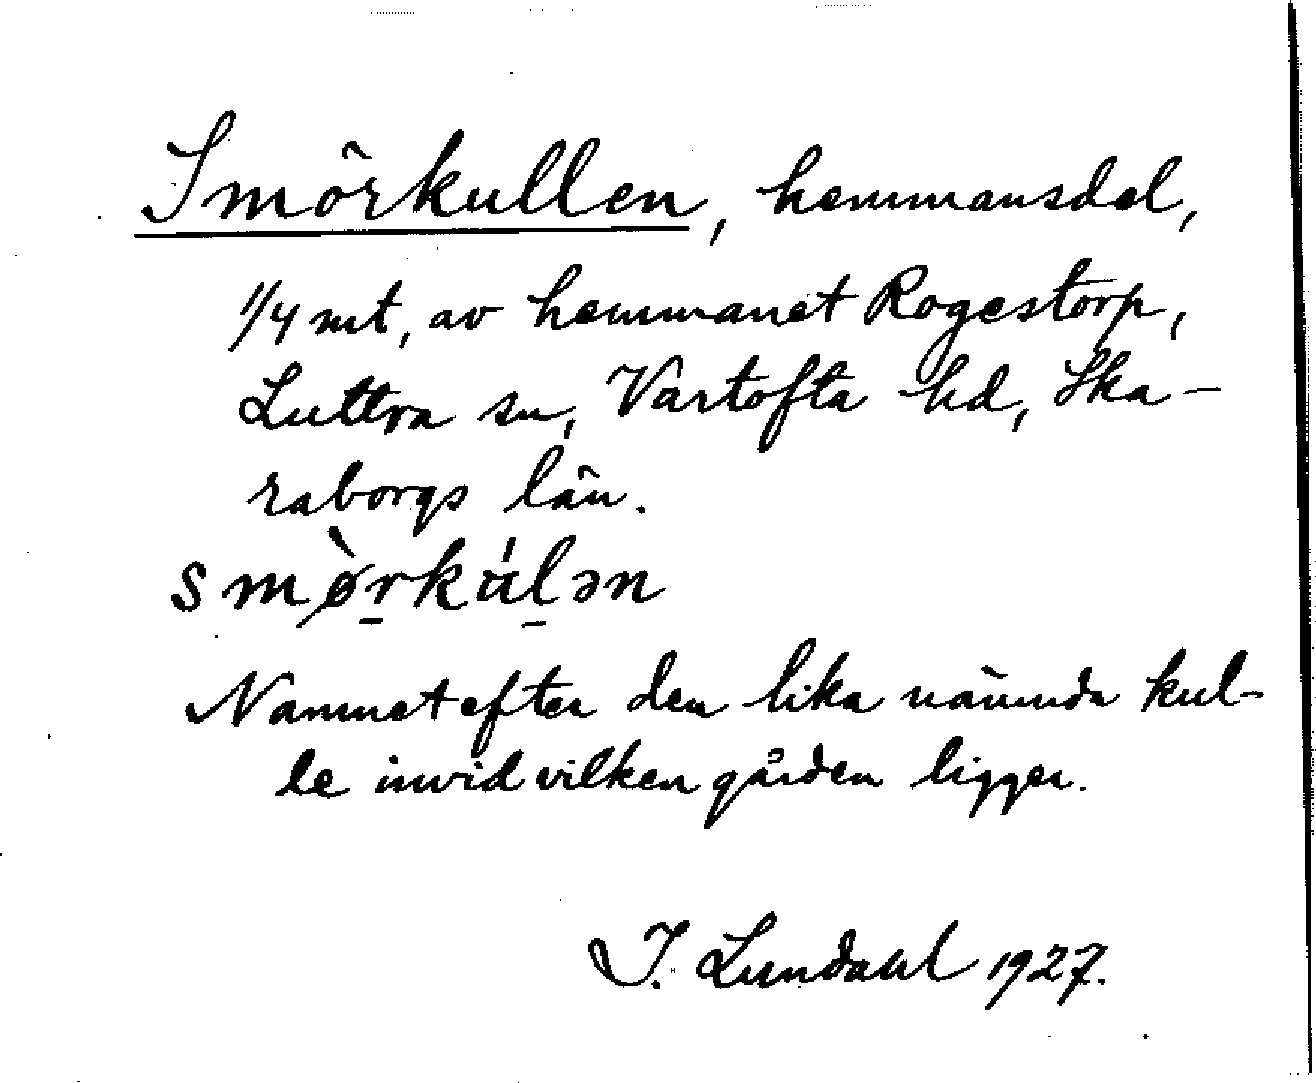 Smörkullen, hemmansdel,
1/4 mt, av hemmanet Rogestorp,
Luttra sn, Vartofta hd, Ska-
raborgs län.
smø̀rkúlən
Namnet efter den lika nämnda kul-
le invid vilken gården ligger.
I. Lundahl 1927.